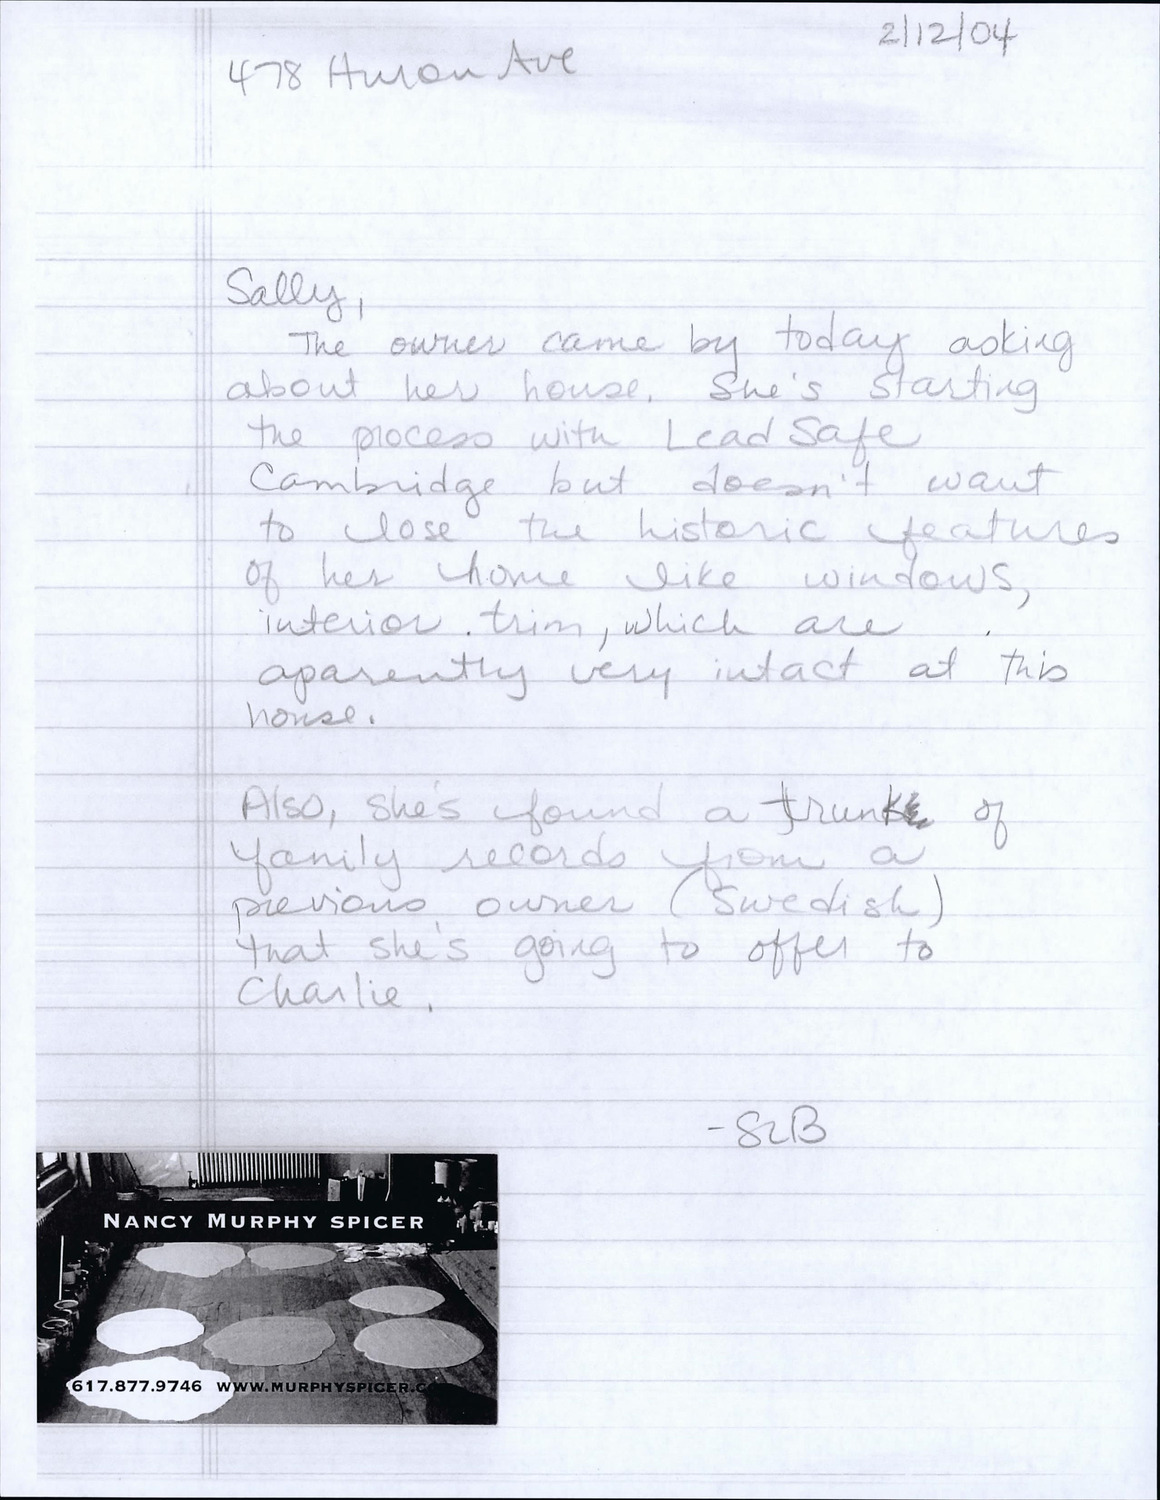 2/12/04
478 Huron Ave
Sally,
The owner came by today asking
about her house. She's starting
the process with Lead Safe
Cambridge but doesn't want
to lose the historic features
of her home like windows,
interior trim, which are
aparently very intact at this
house.
Also, she's found a trunk of
family records from a
previous owner (Swedish)
that she's going to offer to
Charlie.
-SLB
NANCY MURPHY SPICER
617.877.9746 WWW.MURPHYSPICER.C